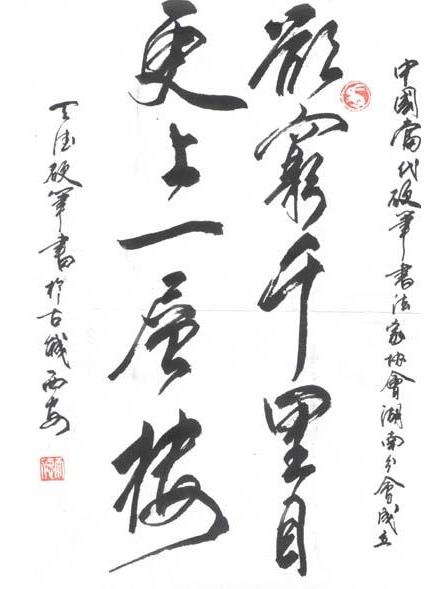 中國當代硬筆書法家协會湖南分會成立
欲窮千里目
更上一层樓
天德硬筆書於古城西安